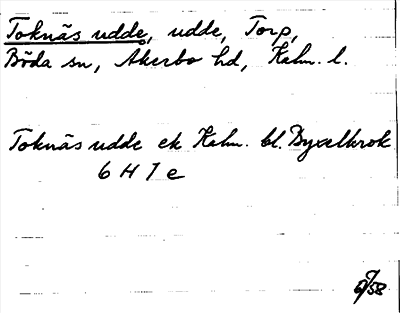 Toknäs udde, udde, Torp,
Böda sn, Åkerbo hd, Kalm. l.
Toknäs udde ek Kalm. bl. Byxelkrok
6 H 7 e
/58